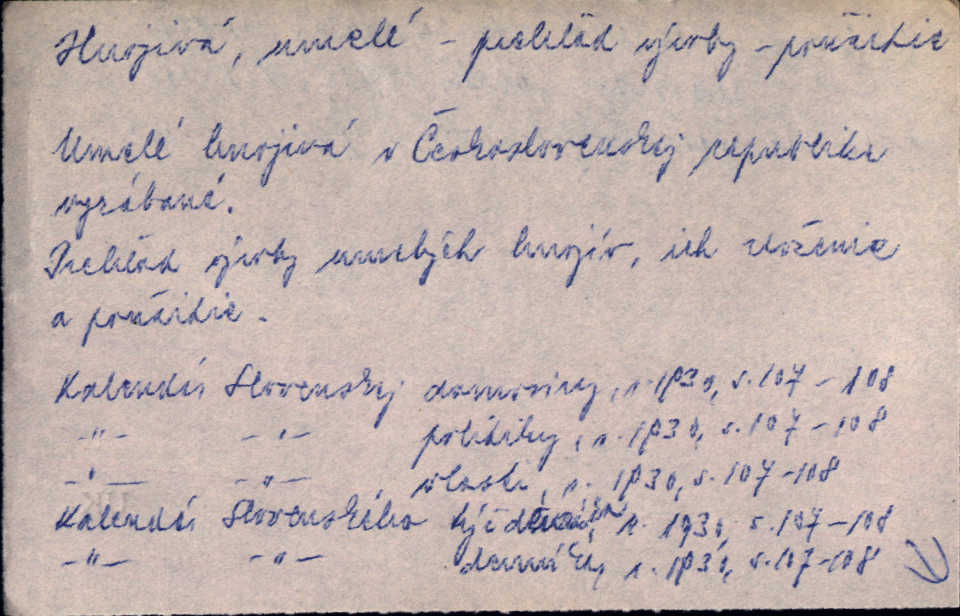 Hnojivá, umelé - prehľad výroby - použitie
Umelé hnojivá v Československej republike
vyrábané.
Prehľad výroby umelých hnojív, ich zloženie
a použitie.
Kalendár Slovenskej domoviny, r. 1930, s. 107-108
-"- -"- politiky, r. 1930, s. 107-108
-"- -"- vlasti, r. 1930, s. 107-108
Kalendár Slovenského r. 1930, s. 107-108
-"- -"- r. 1930, s. 107-108